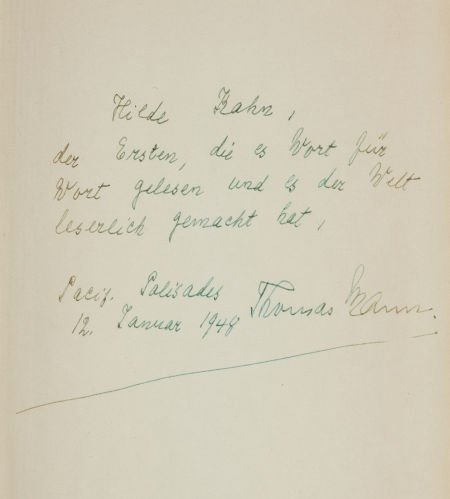 Hilde Kahn,
der Ersten, die es Wort für
Wort gelesen und es der Welt
leserlich gemacht hat,
Pacif. Palisades Thomas Mann.
12. Januar 1948